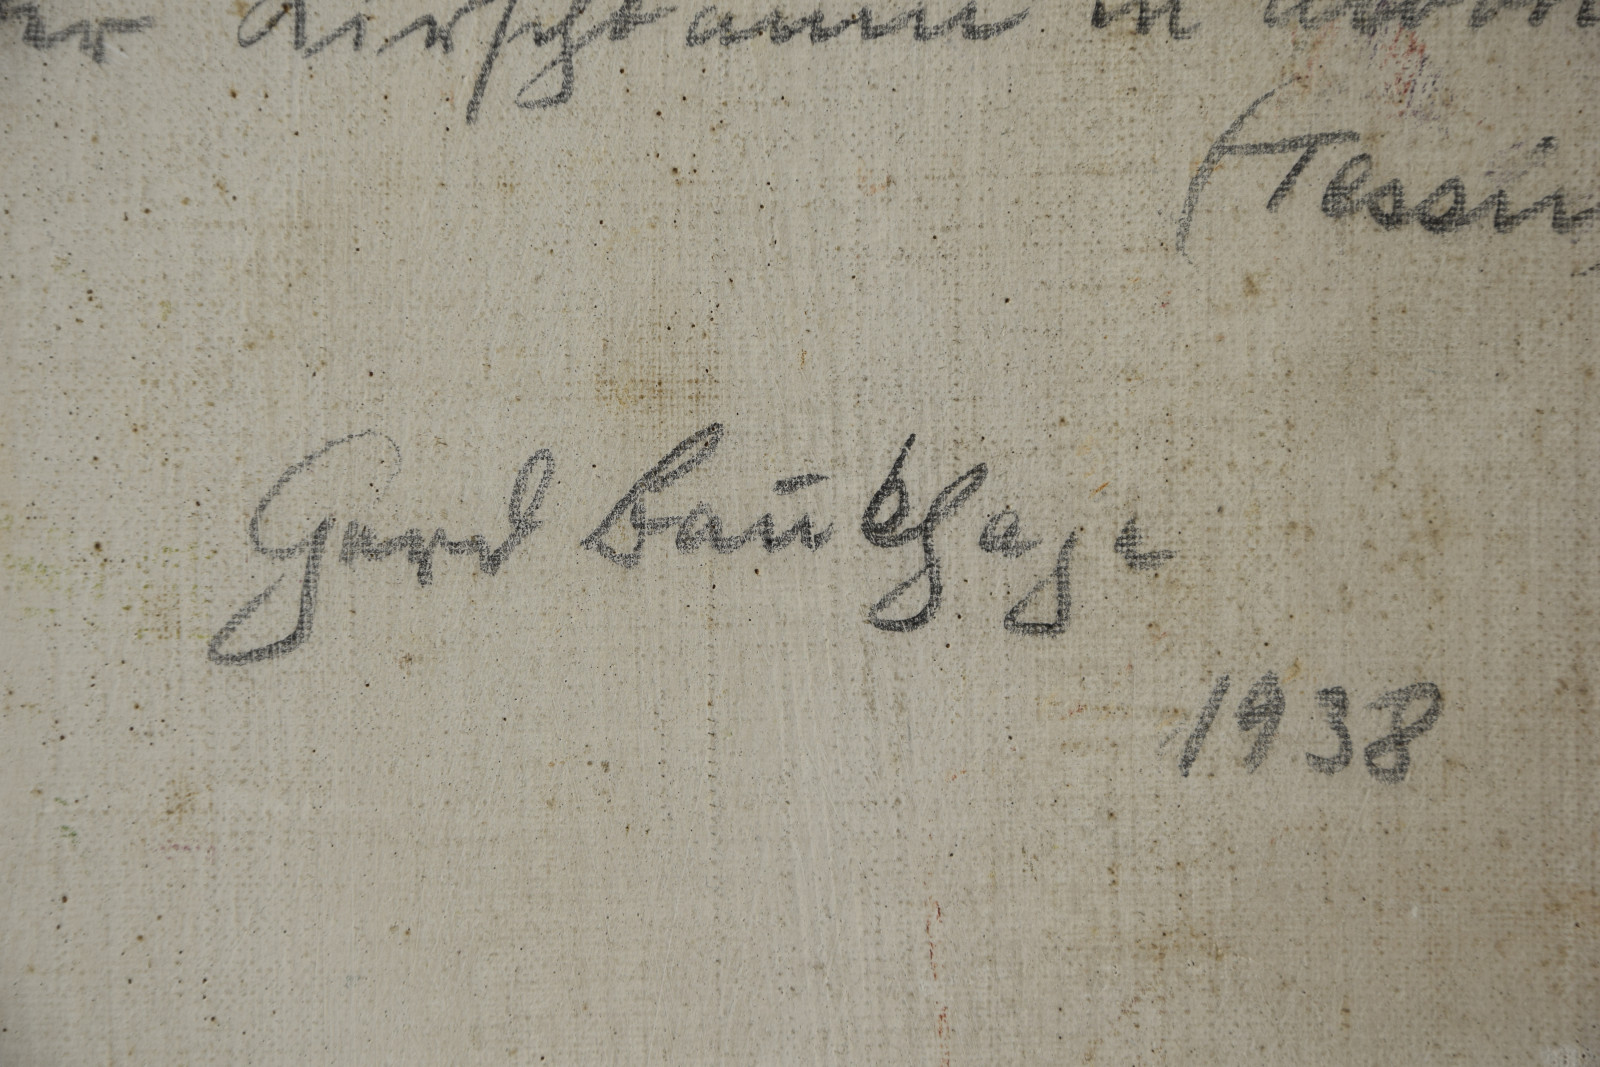 er Kirschbaum in
(Tessin
Gerd Baukhage
1938